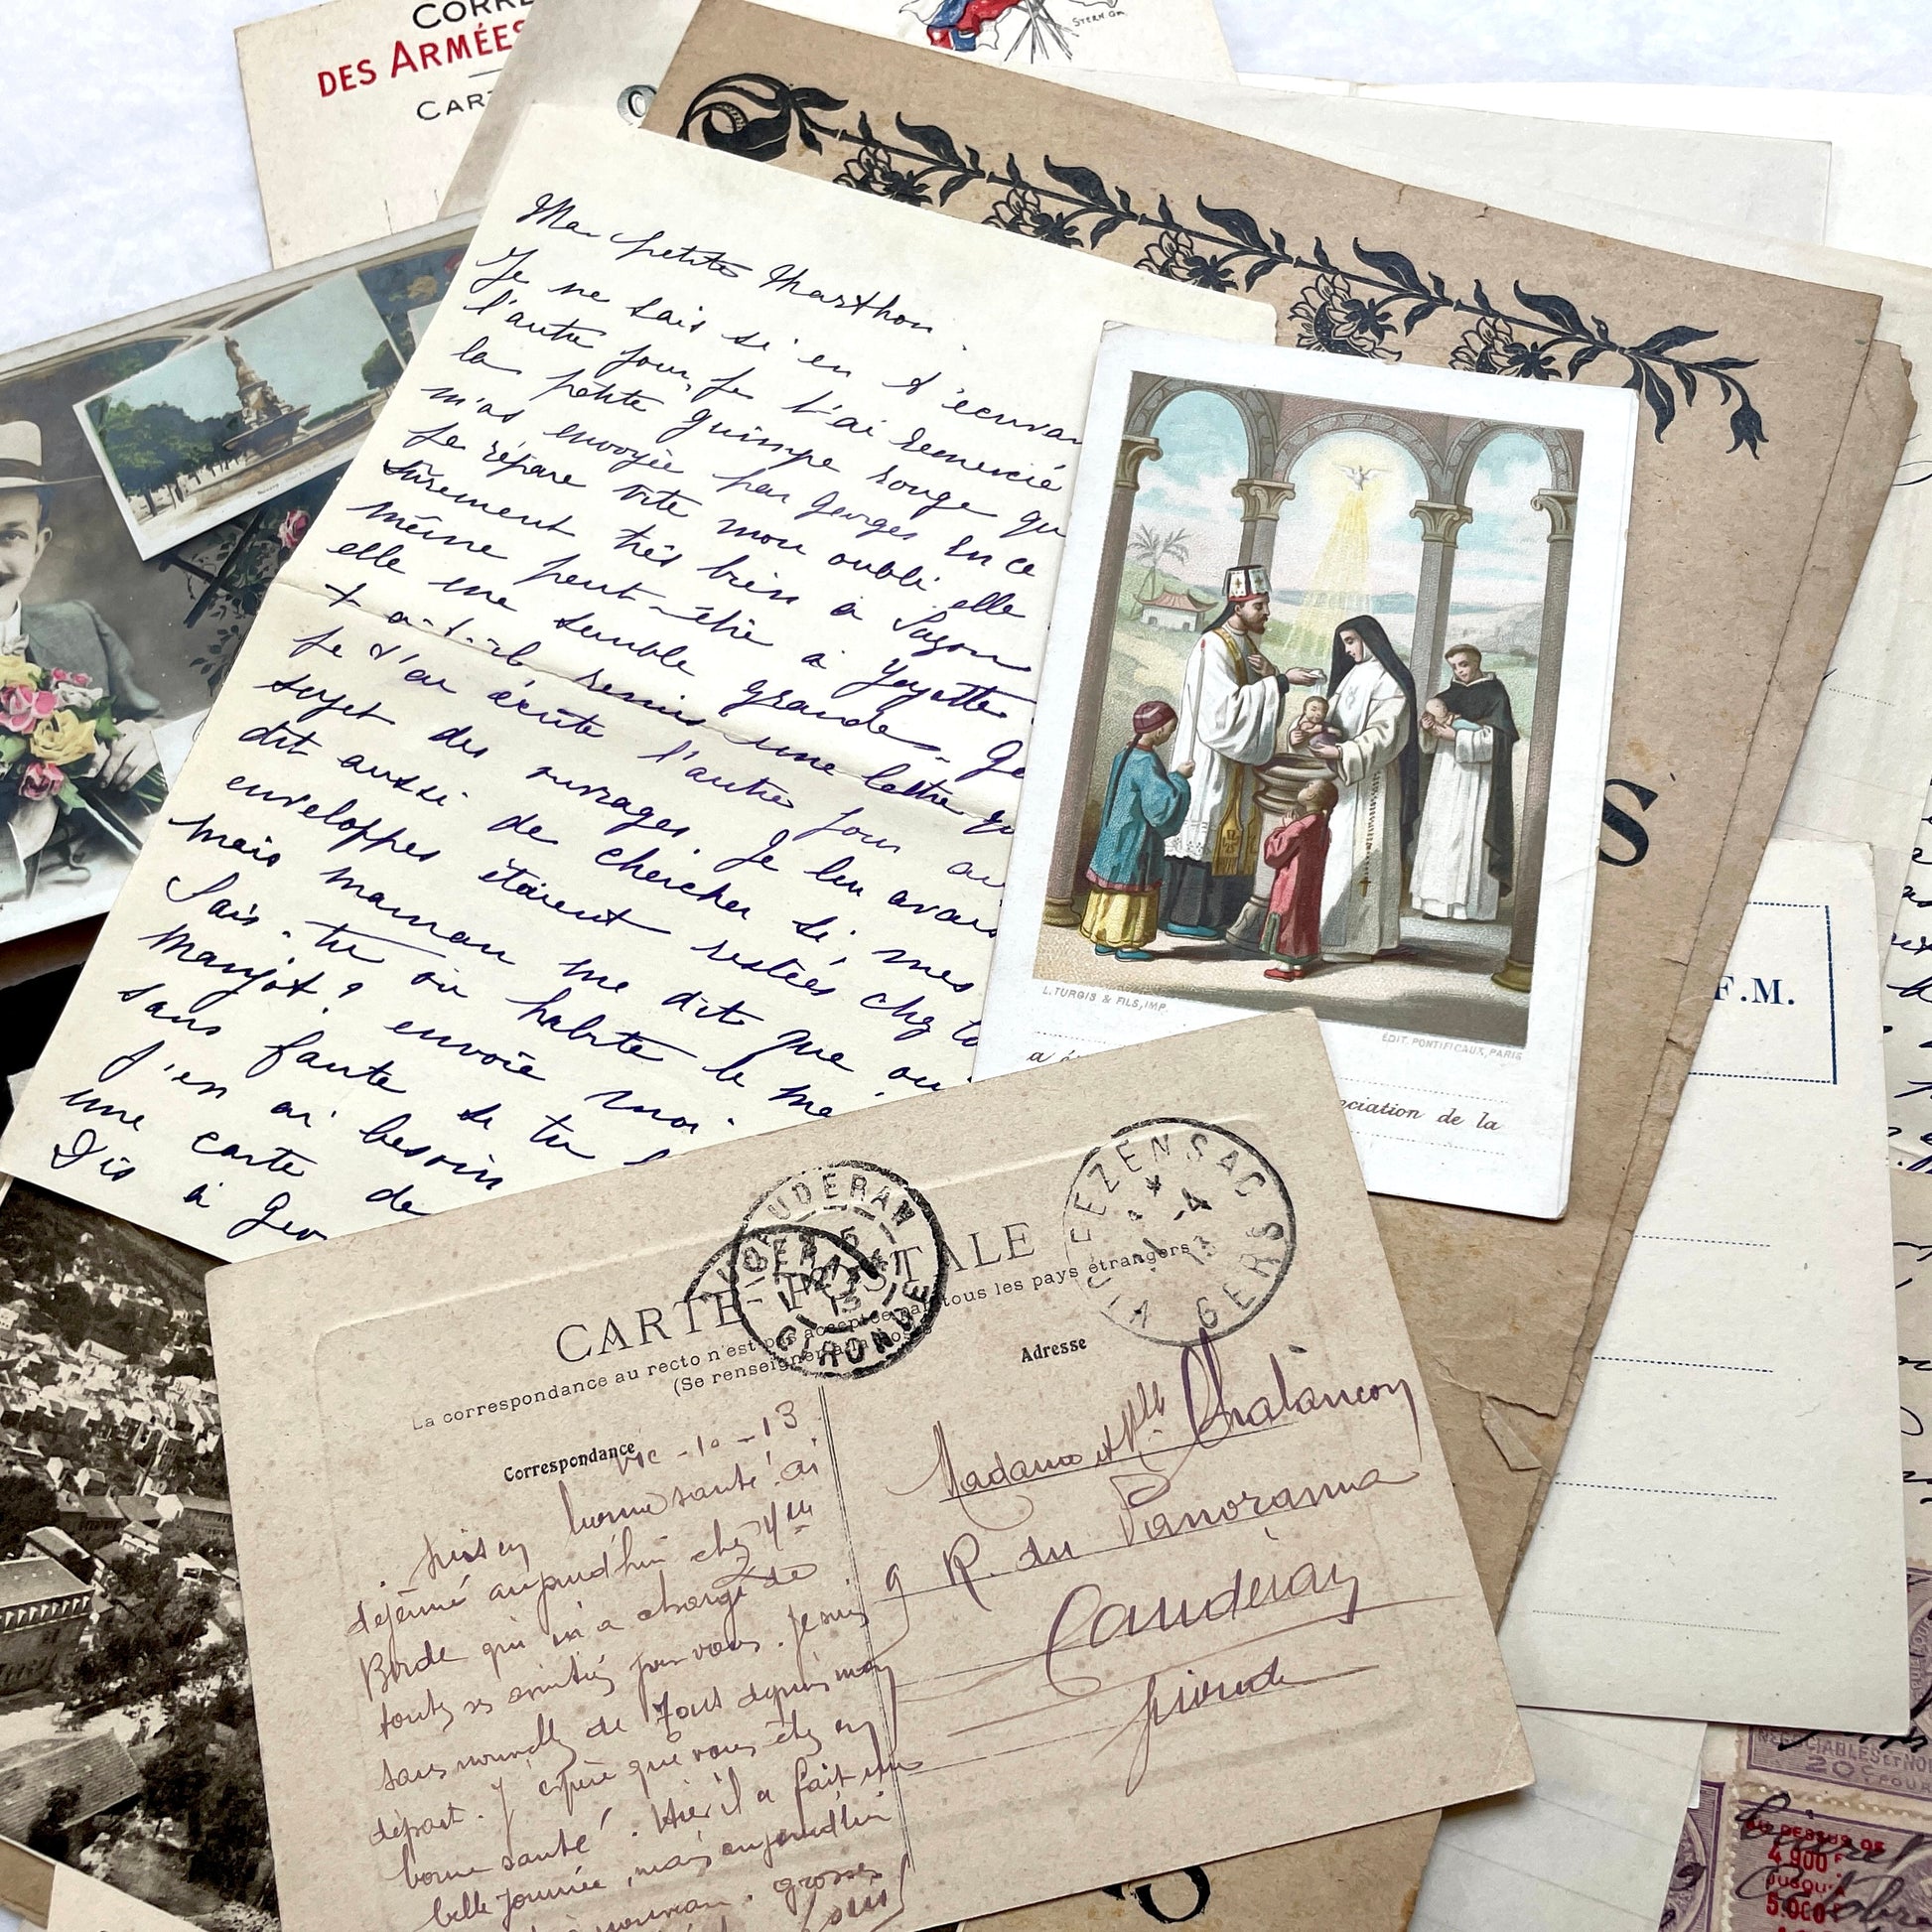 CORRE
DES ARMÉES
CAR
STERN Gr.
Ma petite Marthon
Je ne sais si en t'écrivan
l'autre jour, je t'ai remercié
la petite guimpe rouge qu
m'as envoyée par Georges. En ce
Je répare vite mon oubli elle
sûrement très bien à Suzon
même peut-être à Yoyotte
elle me semble grande. Ge
t'a-t-il remis une lettre qu
Je t'ai écrite l'autre jour au
sujet des ouvrages. Je lui avais
dit aussi de chercher si, mes
enveloppes étaient restées chez to
mais maman me dit que oui
Sais-tu où habite le mé
Manjot? envoie moi-
sans faute si tu
J'en ai besoin
une carte de
Dis à Geo
L. TURGIS & FILS, IMP.
ÉDIT. PONTIFICAUX, PARIS
a é
ociation de la
S
F.M.
CARTE POSTALE
La correspondance au recto n'est pas acceptée par tous les pays étrangers
(Se renseigner à la Poste)
CAUDERAN
GIRONDE
13
VIC FEZENSAC
-4
13
GERS
Correspondance
Adresse
Vic -10 -13
Madame et Mlle Chalançon
9 R. du Panorama
Caudéran
Gironde
Puis en bonne santé ai
déjeuné aujourd'hui chez Mme
Borde qui m'a chargé de
toutes ses amitiés pour vous. Je suis
sans nouvelles de vous depuis mon
départ. J'espère que vous êtes en
bonne santé. Hier il a fait une
belle journée, mais aujourd'hui
grosses
NÉGOCIABLES ET NON
20
AU DESSUS DE
4.900F
JUSQU'À
5.000F